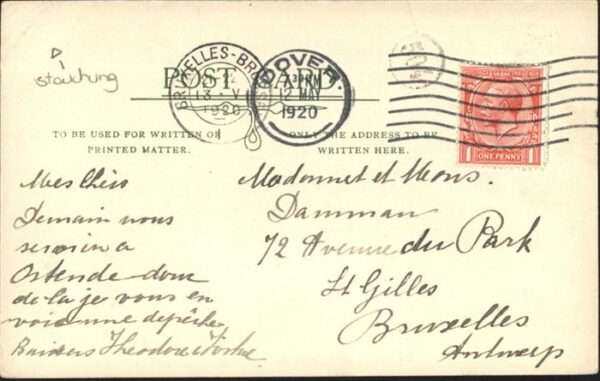 POST CARD.
BRUXELLES-BR
13 V
1920
DOVER
.30 PM
12 MAY
1920
ONE PENNY
TO BE USED FOR WRITTEN OR
PRINTED MATTER.
ONLY THE ADDRESS TO BE
WRITTEN HERE.
Mes chers
Demain nous
serons a
Ostende donc
de la je vous en
voie une depêche
Baisers Theodore
Madame et Mons.
Damman
72 Avenue du Park
St Gilles
Bruxelles
Antwerp